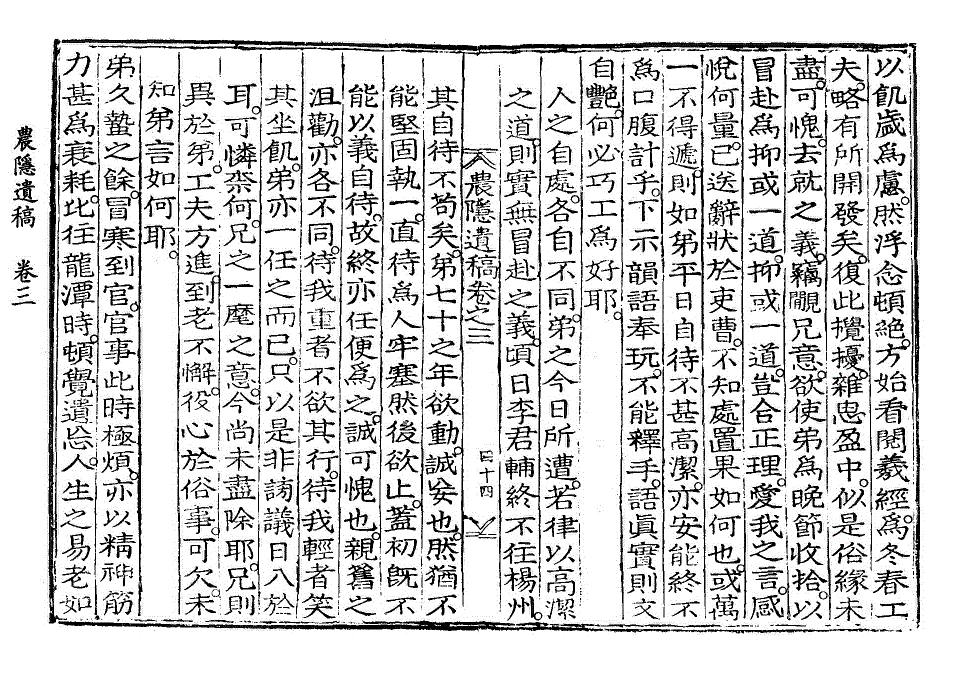 以飢歲爲慮。然浮念頓絶。方始看閱羲經。爲冬春工
夫。略有所開發矣。復此攪擾。雜思盈中。似是俗緣未
盡。可愧。去就之義。竊覵兄意。欲使弟爲晩節收拾。以
冒赴爲抑或一道。抑或一道。豈合正理。愛我之言。感
悅何量。已送辭狀於吏曹。不知處置果如何也。或萬
一不得遞。則如弟平日自待不甚高潔。亦安能終不
爲口腹計乎。下示韻語奉玩。不能釋手。語眞實則文
自艶。何必巧工爲好耶。
人之自處。各自不同。弟之今日所遭。若律以高潔
之道。則實無冒赴之義。頃日李君輔終不往楊州。
農隱遺稿卷之三
四十四
其自待不苟矣。弟七十之年欲動。誠妄也。然猶不
能堅固執。一直待爲人牢塞然後欲止。蓋初旣不
能以義自待。故終亦任便爲之。誠可愧也。親舊之
沮勸。亦各不同。待我重者不欲其行。待我輕者笑
其坐飢。弟亦一任之而已。只以是非謗議日入於
耳。可憐柰何。兄之一麾之意。今尙未盡除耶。兄則
異於弟。工夫方進。到老不懈。役心於俗事。可欠。未
知弟言如何耶。
弟久蟄之餘。冒寒到官。官事此時極煩。亦以精神筋
力甚爲衰耗。比往龍潭時。頓覺遺忘。人生之易老如
農隱遺稿 卷三